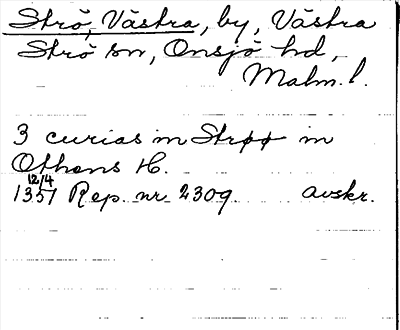 Strö, Västra, by, Västra
Strö sn, Onsjö hd,
Malm. l.
3 curias in Strøø in
Othens H.
12/4
1351 Rep. nr. 2309. avskr.